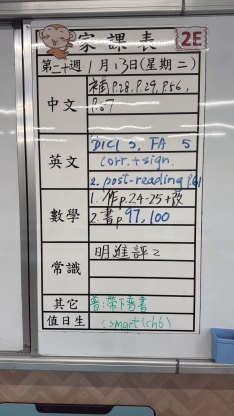 家課表
2E
第二十週 1月13日(星期二)
中文
補p.28, p.29, p.56,
p.67
英文
DICT 5, FA 5
corr. + sign.
2. post-reading p.61
數學
1. 作p.24-25+改
2. 書p97,100
常識
明進評2
其它
著:帶下書
值日生
smart (ch6)